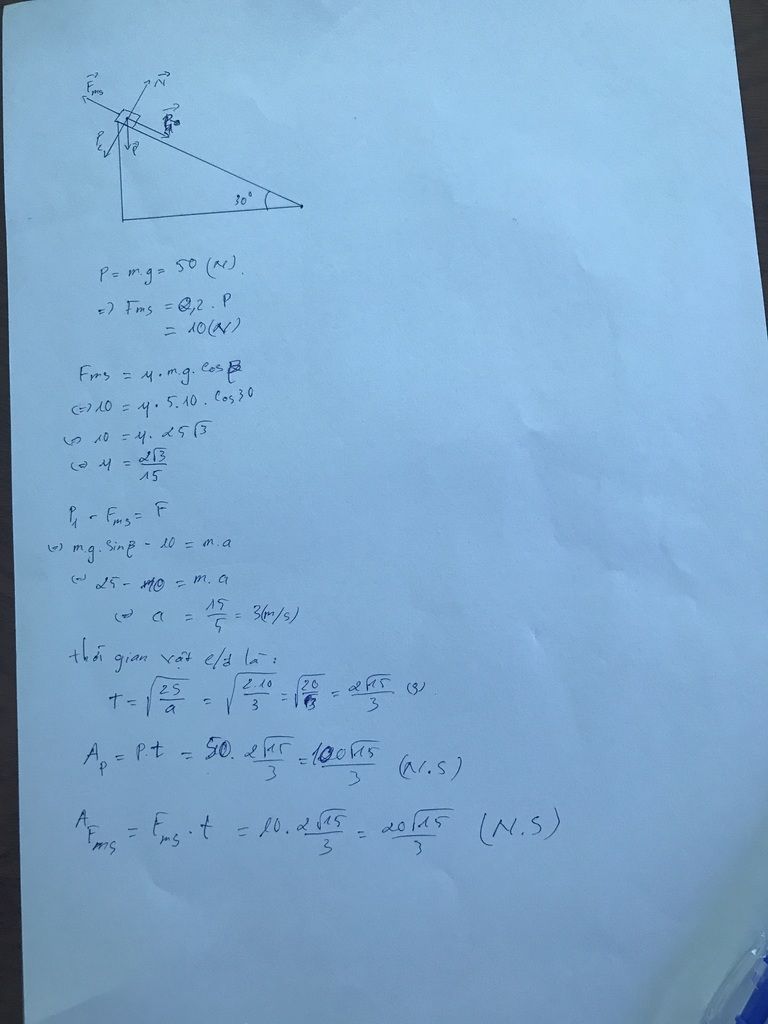 F⃗ms
N⃗
P₂
P⃗
30°
P = m.g = 50 (N).
=> Fms = 0,2 . P
= 10(N)
Fms = μ . m.g. cosβ
<=> 10 = μ . 5.10 . cos30
<=> 10 = μ . 25√3
<=> μ = 2√3/15
P₁ - Fms = F
<=> m.g. sinβ - 10 = m.a
<=> 25 - 10 = m.a
<=> a = 15/5 = 3(m/s)
thời gian vật c/đ là:
t = √(2S/a) = √(2.10/3) = √(20/3) = 2√15/3 (s).
A_P = P.t = 50. 2√15/3 = 100√15/3 (N.S)
A_Fms = Fms . t = 10. 2√15/3 = 20√15/3 (N.S)